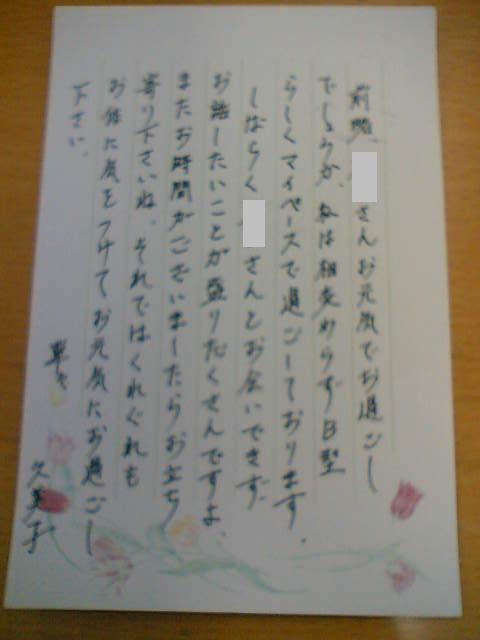 前略 さんお元気でお過ごし
でしょうか、私は相変わらずB型
らしくマイペースで過ごしております。
しばらく さんとお会いできず、
お話したいことが盛りだくさんですよ、
またお時間がございましたらお立ち
寄り下さいね、それではくれぐれも
お体に気をつけてお元気にお過ごし
下さい、
草々
久美子